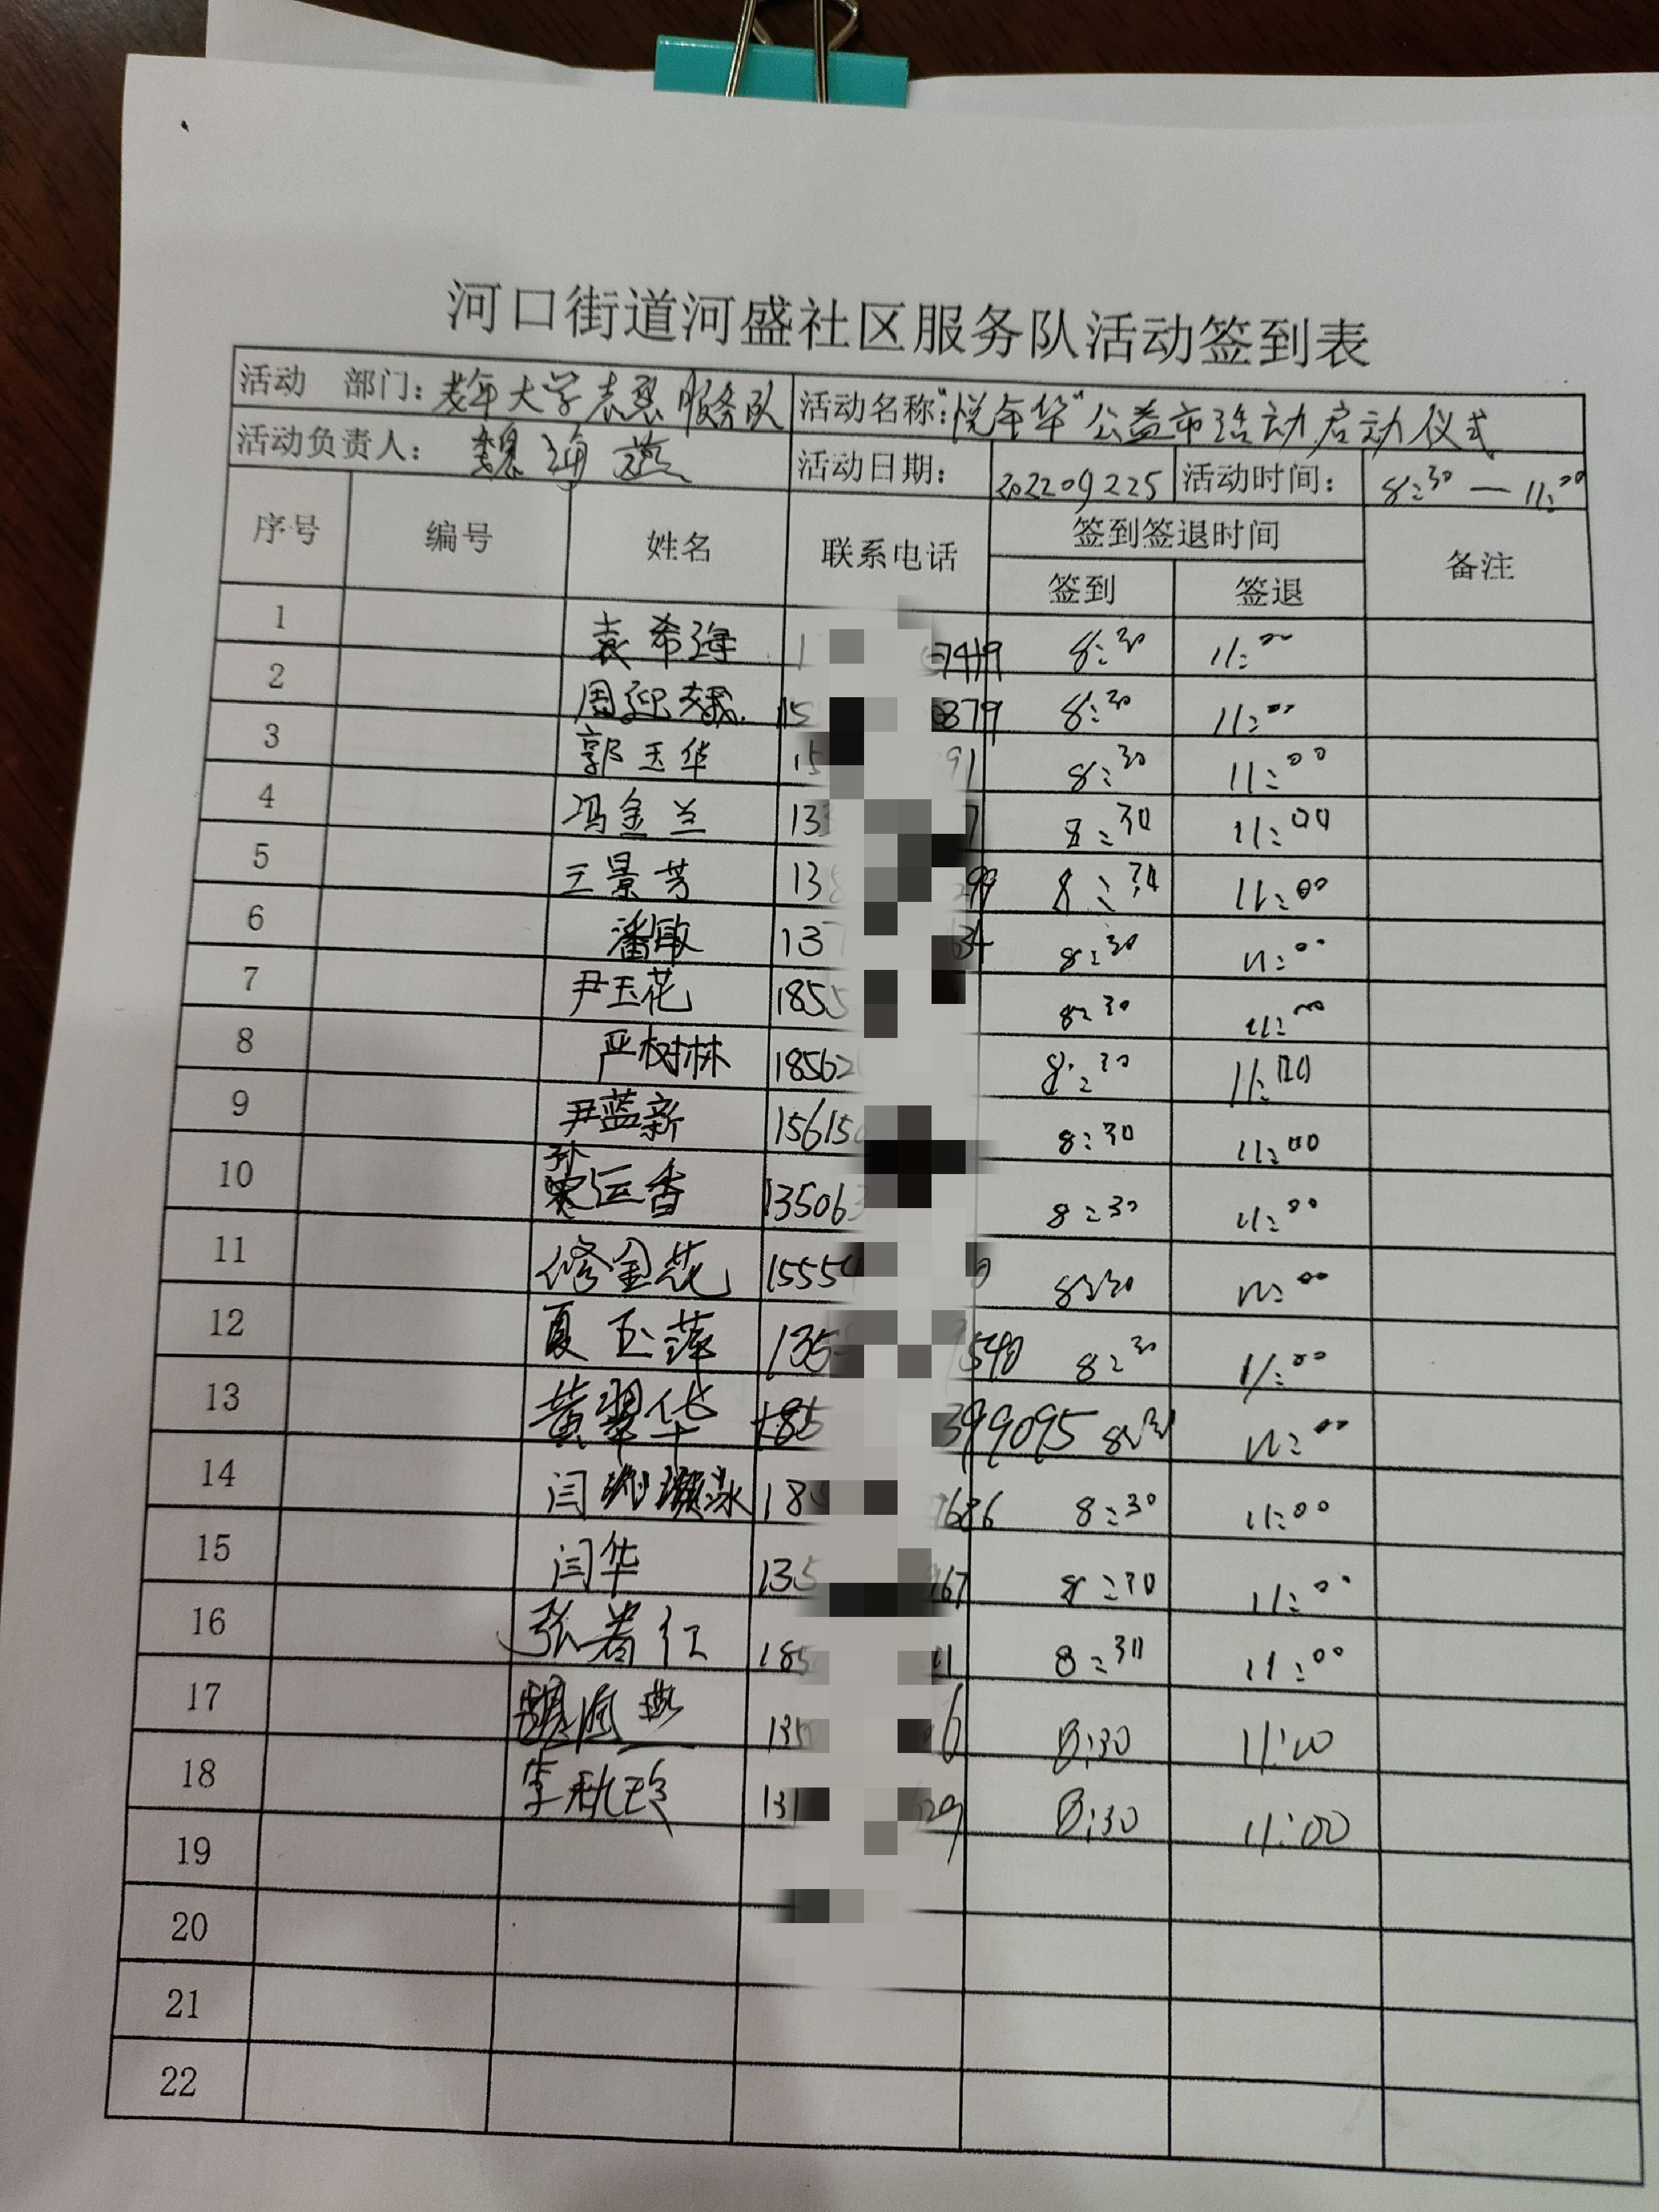 河口街道河盛社区服务队活动签到表
活动 部门：老年大学志愿服务队 活动名称："悦年华"公益市活动启动仪式
活动负责人：魏海燕 活动日期： 202209225 活动时间： 8:30—11:00
序号 编号 姓名 联系电话 签到签退时间 备注
签到 签退
1 袁希海 1 7419 8:30 11:00
2 周迎娥 15 879 8:30 11:00
3 郭玉华 15 91 8:30 11:00
4 冯金兰 133 7 8:30 11:00
5 王景芳 13 99 8:30 11:00
6 潘敏 137 34 8:30 11:00
7 尹玉花 1855 8:30 11:00
8 严树林 18562 8:30 11:00
9 尹蓝新 15615 8:30 11:00
10 孙运香 13506 8:30 11:00
11 修金花 1555 0 8:30 11:00
12 夏玉萍 135 540 8:30 11:00
13 黄翠华 185 399095 8:30 11:00
14 闫 冰 18 7686 8:30 11:00
15 闫华 135 967 8:30 11:00
16 张着红 185 11 8:30 11:00
17 魏海燕 135 6 8:30 11:00
18 李秋玲 131 29 8:30 11:00
19
20
21
22